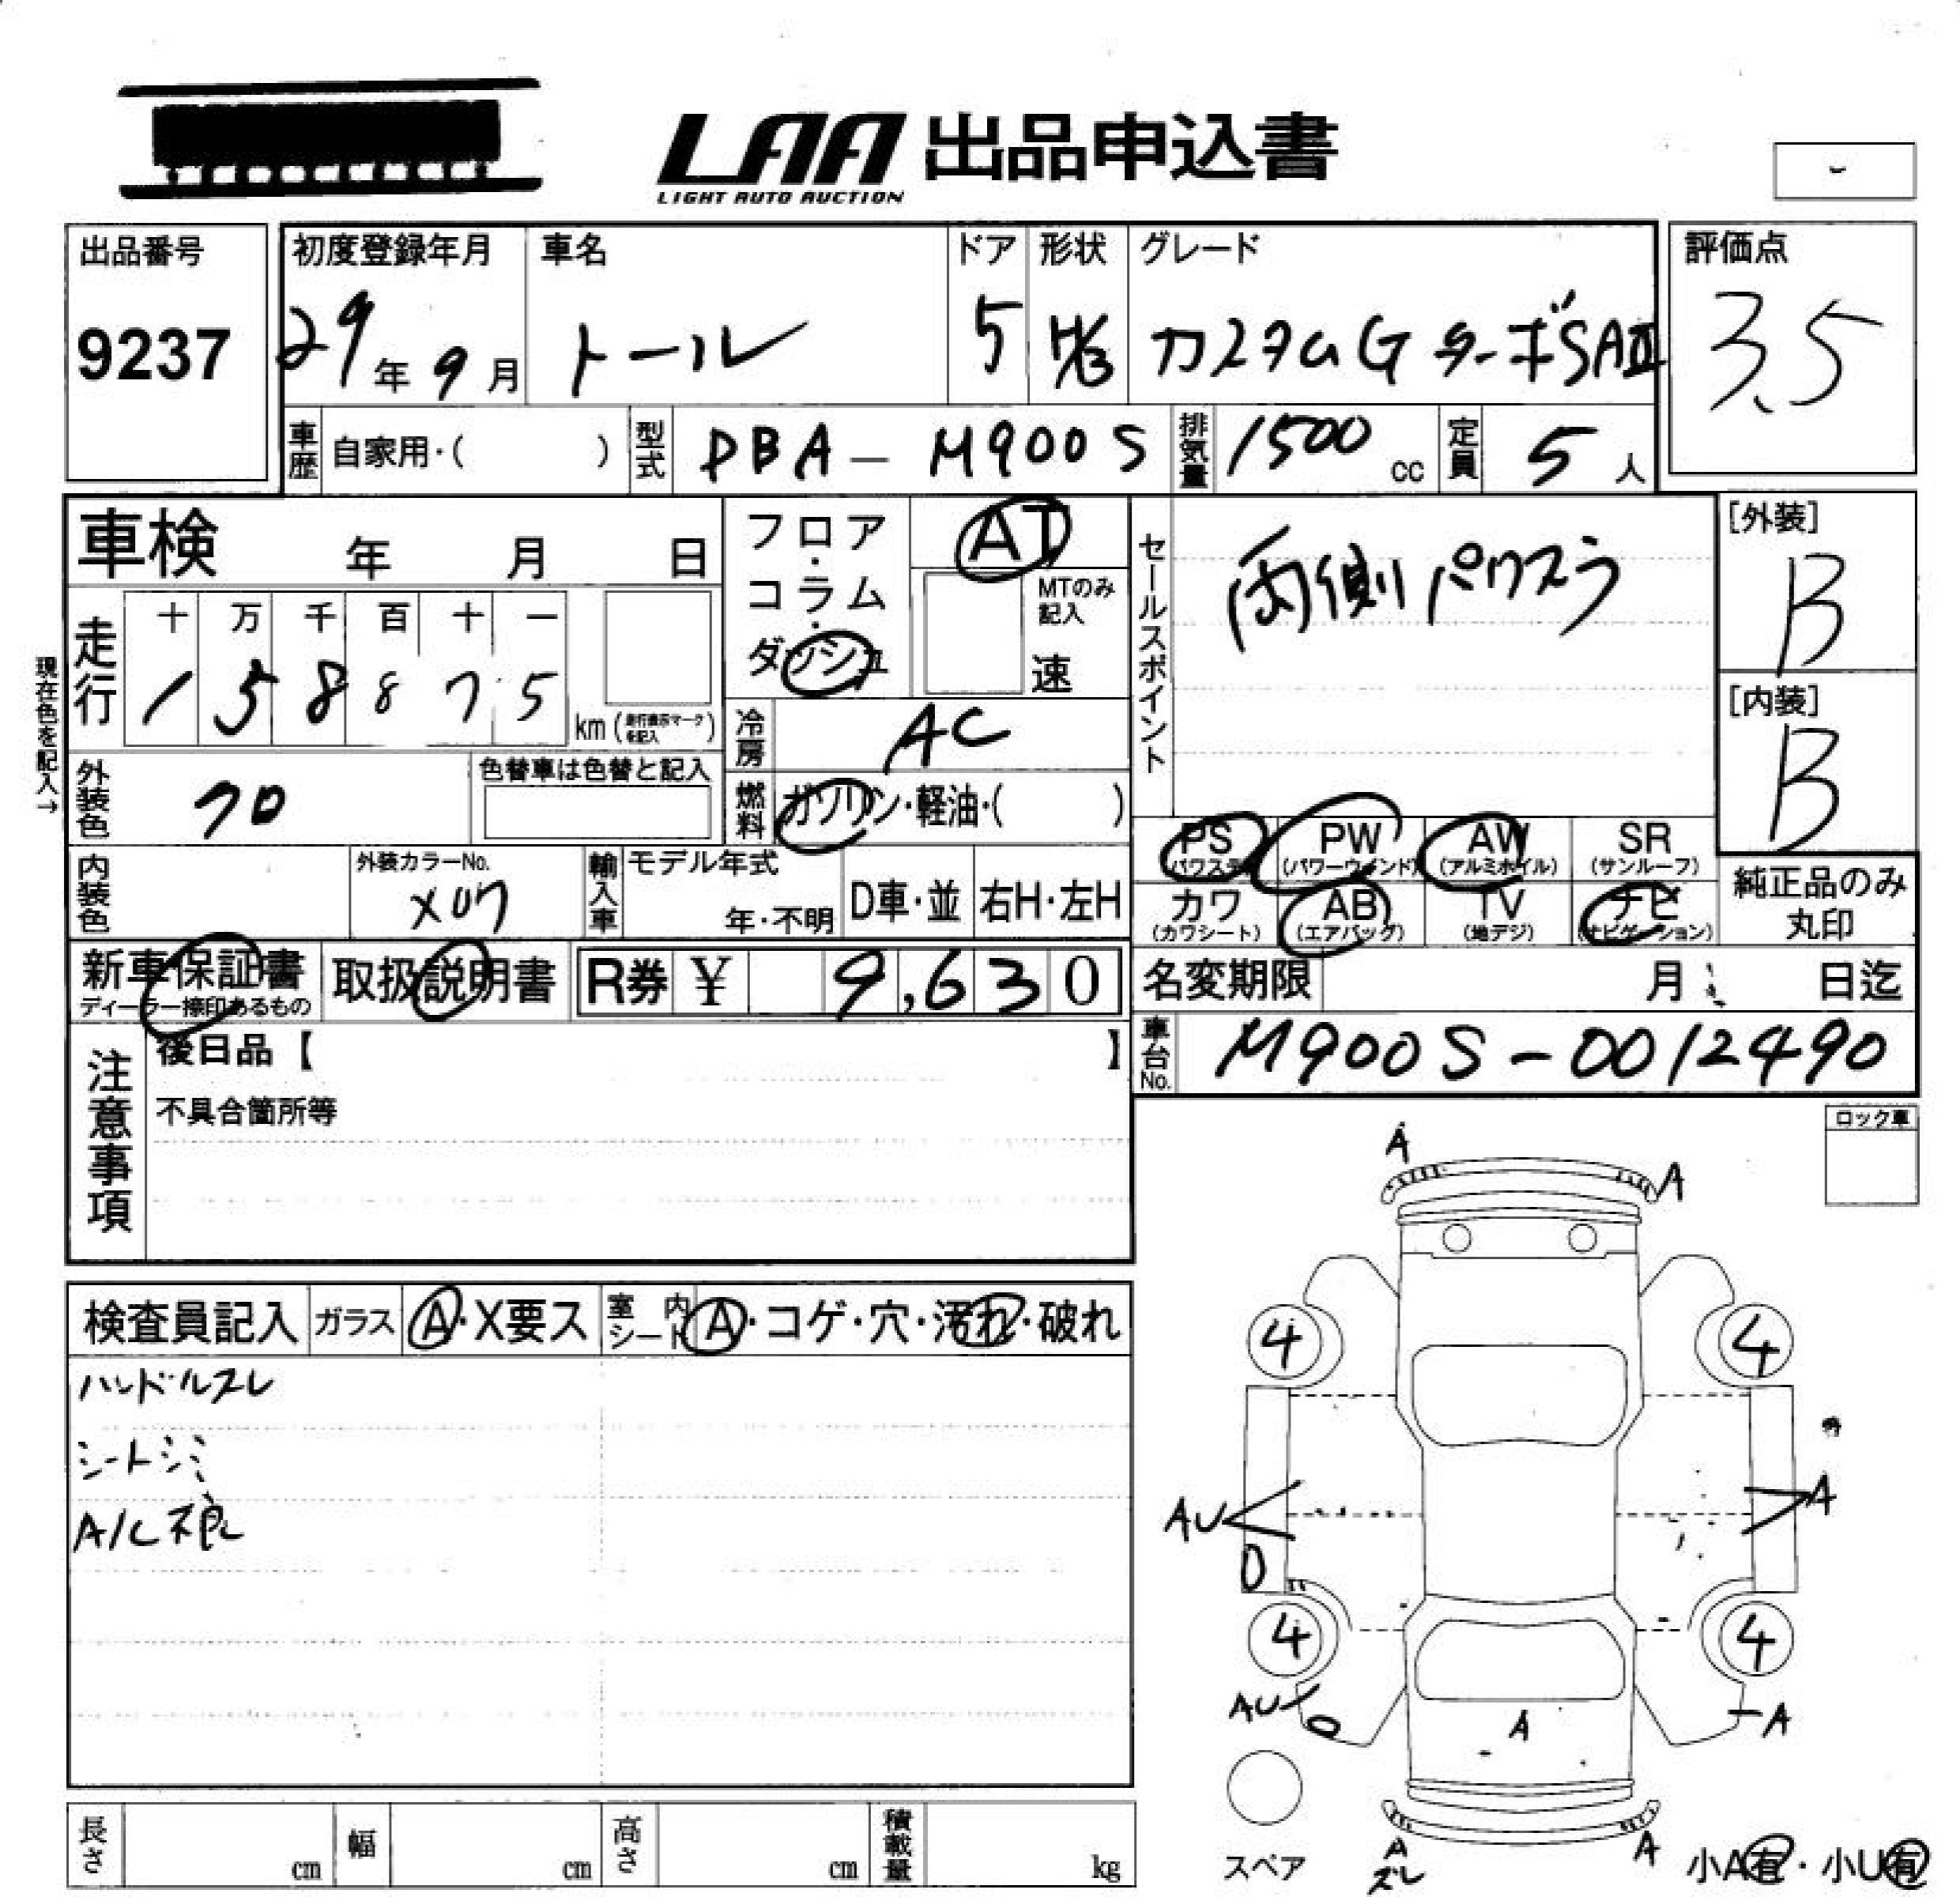 LAA 出品申込書
LIGHT AUTO AUCTION
出品番号
9237
初度登録年月
29年 9月
車名
トール
ドア
5
形状
H/B
グレード
カスタムG ターボSAⅡ
評価点
3.5
車歴 自家用・( )
型式 DBA-M900S
排気量 1500 cc
定員 5 人
車検 年 月 日
フロア・コラム・ダッシュ
AT
MTのみ記入
速
セールスポイント
両側パワスラ
[外装]
B
[内装]
B
現在色を記入→
走行
十 万 千 百 十 一
1 5 8 8 7 5 km (走行表示マークを記入)
冷房 AC
外装色 クロ
色替車は色替と記入
燃料 ガソリン・軽油・( )
PS (パワステ)
PW (パワーウィンド)
AW (アルミホイル)
SR (サンルーフ)
カワ (カワシート)
AB (エアバッグ)
TV (地デジ)
ナビ (ナビゲーション)
純正品のみ丸印
内装色
外装カラーNo.
X07
輸入車
モデル年式
年・不明
D車・並
右H・左H
新車保証書
ディーラー捺印あるもの
取扱説明書
R券 ¥ 9,630
名変期限 月 日迄
車台No. M900S-0012490
注意事項
後日品【 】
不具合箇所等
ロック車
検査員記入
ガラス A・X要ス
室内シート A・コゲ・穴・汚れ・破れ
ハンドルスレ
シートシミ
A/C不良
A
A
4
4
AU
A
4
4
AU
A
A
スペア
A
ズレ
A
小A有・小U有
長さ cm
幅 cm
高さ cm
積載量 kg